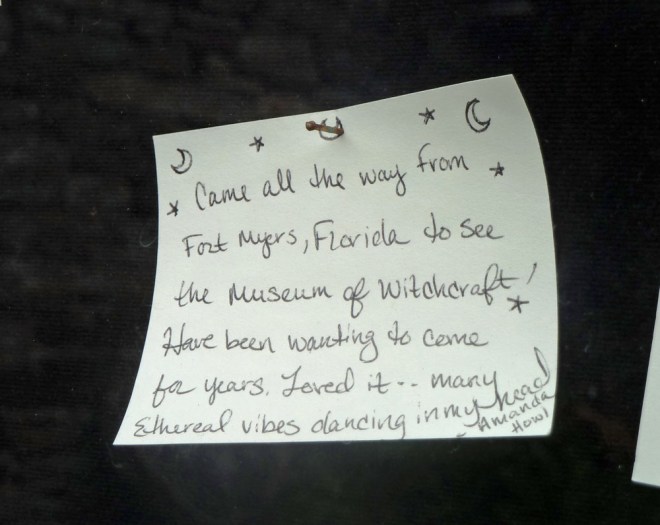 Came all the way from
Fort Myers, Florida to see
the Museum of Witchcraft!
Have been wanting to come
for years. Loved it.. many
Ethereal vibes dancing in my head
- Amanda
Howl